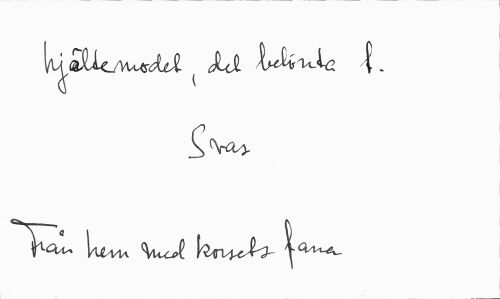 hjältemodet, det belönta f.
Svar
Från hem med korsets fana